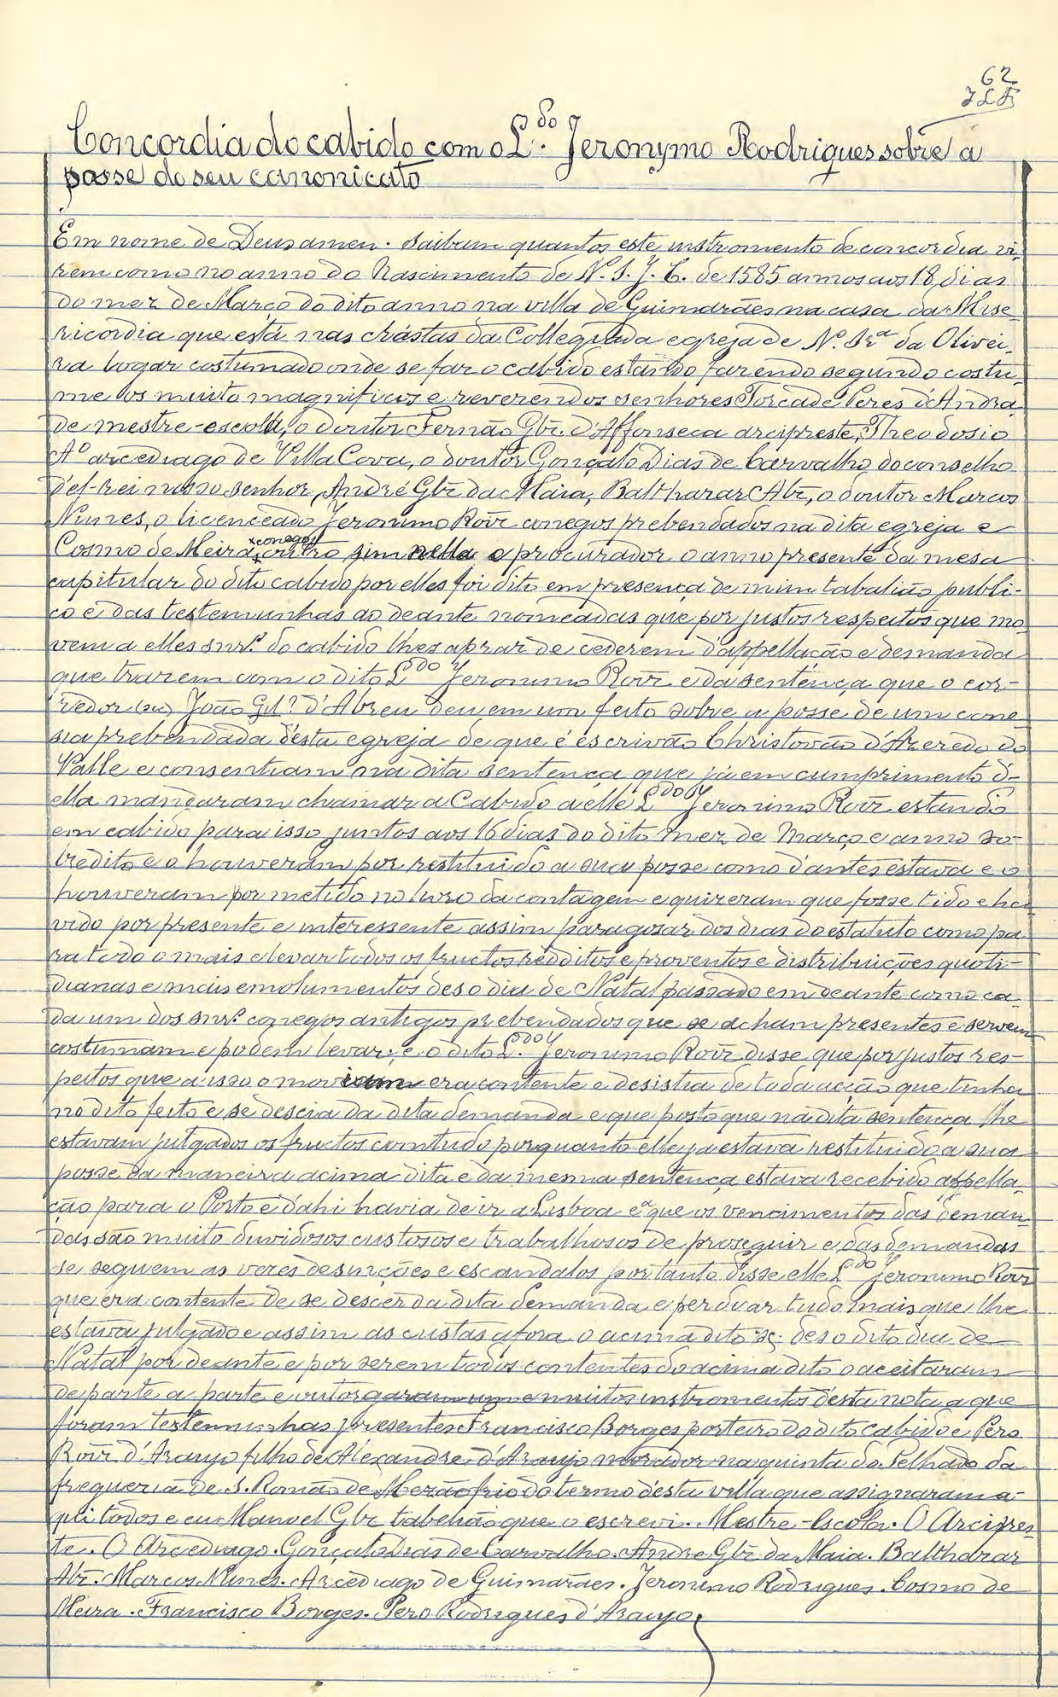 62
JLF
Concordia do cabido com o L.do Jeronymo Rodrigues sobre a
posse do seu canonicato
Em nome de Deus amen. Saibam quantos este instromento de concordia vi-
rem como no anno do Nascimento de N. S. J. C. de 1585 annos aos 18 dias
do mez de Março do dito anno na villa de Guimarães na casa da Mise-
ricordia que está nas crástas da Collegiada egreja de N. Sr.a da Olivei-
ra logar costumado onde se faz o cabido estando fazendo segundo costu-
me os muito magnificos e reverendos senhores Torcade Peres d'Andra-
de mestre-escola, o doutor Fernão Glz. d'Affonseca arcipreste, Theodosio
A.o arcediago de Villa Cova, o doutor Gonçalo Dias de Carvalho do conselho
d'el-rei nosso senhor, André Glz. da Maia, Balthazar Abz., o doutor Marcos
Nunes, o licenceado Jeronimo Roiz conegos prebendados na dita egreja e
Cosmo de Meira conego outro sim nella e procurador o anno presente da mesa
capitular do dito cabido por elles foi dito em presença de mim tabalião publi-
co e das testemunhas ao deante nomeadas que por justos respeitos que mo-
vem a elles snr.s do cabido lhes apraz de cederem d'appellação e demanda
que trazem com o dito L.do Jeronimo Roiz e da sentença que o cor-
redor (sic) João Gil d'Abreu deu em um feito sobre a posse de um cone-
sia prebendada d'esta egreja de que é escrivão Christovão d'Azeredo do
Valle e consentiam na dita sentença que já em cumprimento d'-
ella mandaram chamar a Cabido a elle L.do Jeronimo Roiz estando
em cabido para isso juntos aos 16 dias do dito mez de Março e anno so-
bredito e o houveram por restituido a sua posse como d'antes estava e o
houveram por metido no livro da contagem e quizeram que fosse tido e ha-
vido por presente e interessente assim para gosar dos dias do estatuto como pa-
ra todo o mais e levar todos os fructos redditos e proventos e distribuições quoti-
dianas e mais emolumentos des o dia de Natal passado em deante como ca-
da um dos snr.s conegos antigos prebendados que se acham presentes e servem
costumam e podem levar; e o dito L.do Jeronimo Roiz disse que por justos res-
peitos que a isso o moviam era contente e desistia de toda acção que tinha
no dito feito e se descia da dita demanda e que posto que na dita sentença lhe
estavam julgados os fructos comtudo porquanto elle ja estava restituido a sua
posse da maneira acima dita e da mesma sentença estava recebido appella-
ção para o Porto e d'ahi havia de ir a Lisboa e que os vencimentos das deman-
das são muito duvidosos custosos e trabalhosos de proseguir e das demandas
se seguem as vezes desunções e escandalos portanto disse elle L.do Jeronimo Roiz
que era contente de se descer da dita demanda e perdoar tudo mais que lhe
estava julgado e assim as custas afora o acima dito sc. des o dito dia de
Natal por deante e por serem todos contentes do acima dito o aceitaram
de parte a parte e outorgaram um e muitos instromentos d'esta nota a que
foram testemunhas presentes Francisco Borges porteiro do dito cabido e Pero
Roiz d'Araujo filho de Alexandre d'Araujo morador na quinta do Pelhado da
freguezia de S. Romão de Mezãofrio do termo d'esta villa que assignaram a-
qui todos e eu Manuel Glz. tabelião que o escrevi. Mestre-Escola. O Arcipres-
te. O Arcediago. Gonçalo Dias de Carvalho. André Glz. da Maia. Balthazar
Abz. Marcos Nunes. Arcediago de Guimarães. Jeronimo Rodrigues. Cosmo de
Meira. Francisco Borges. Pero Rodrigues d'Araujo.